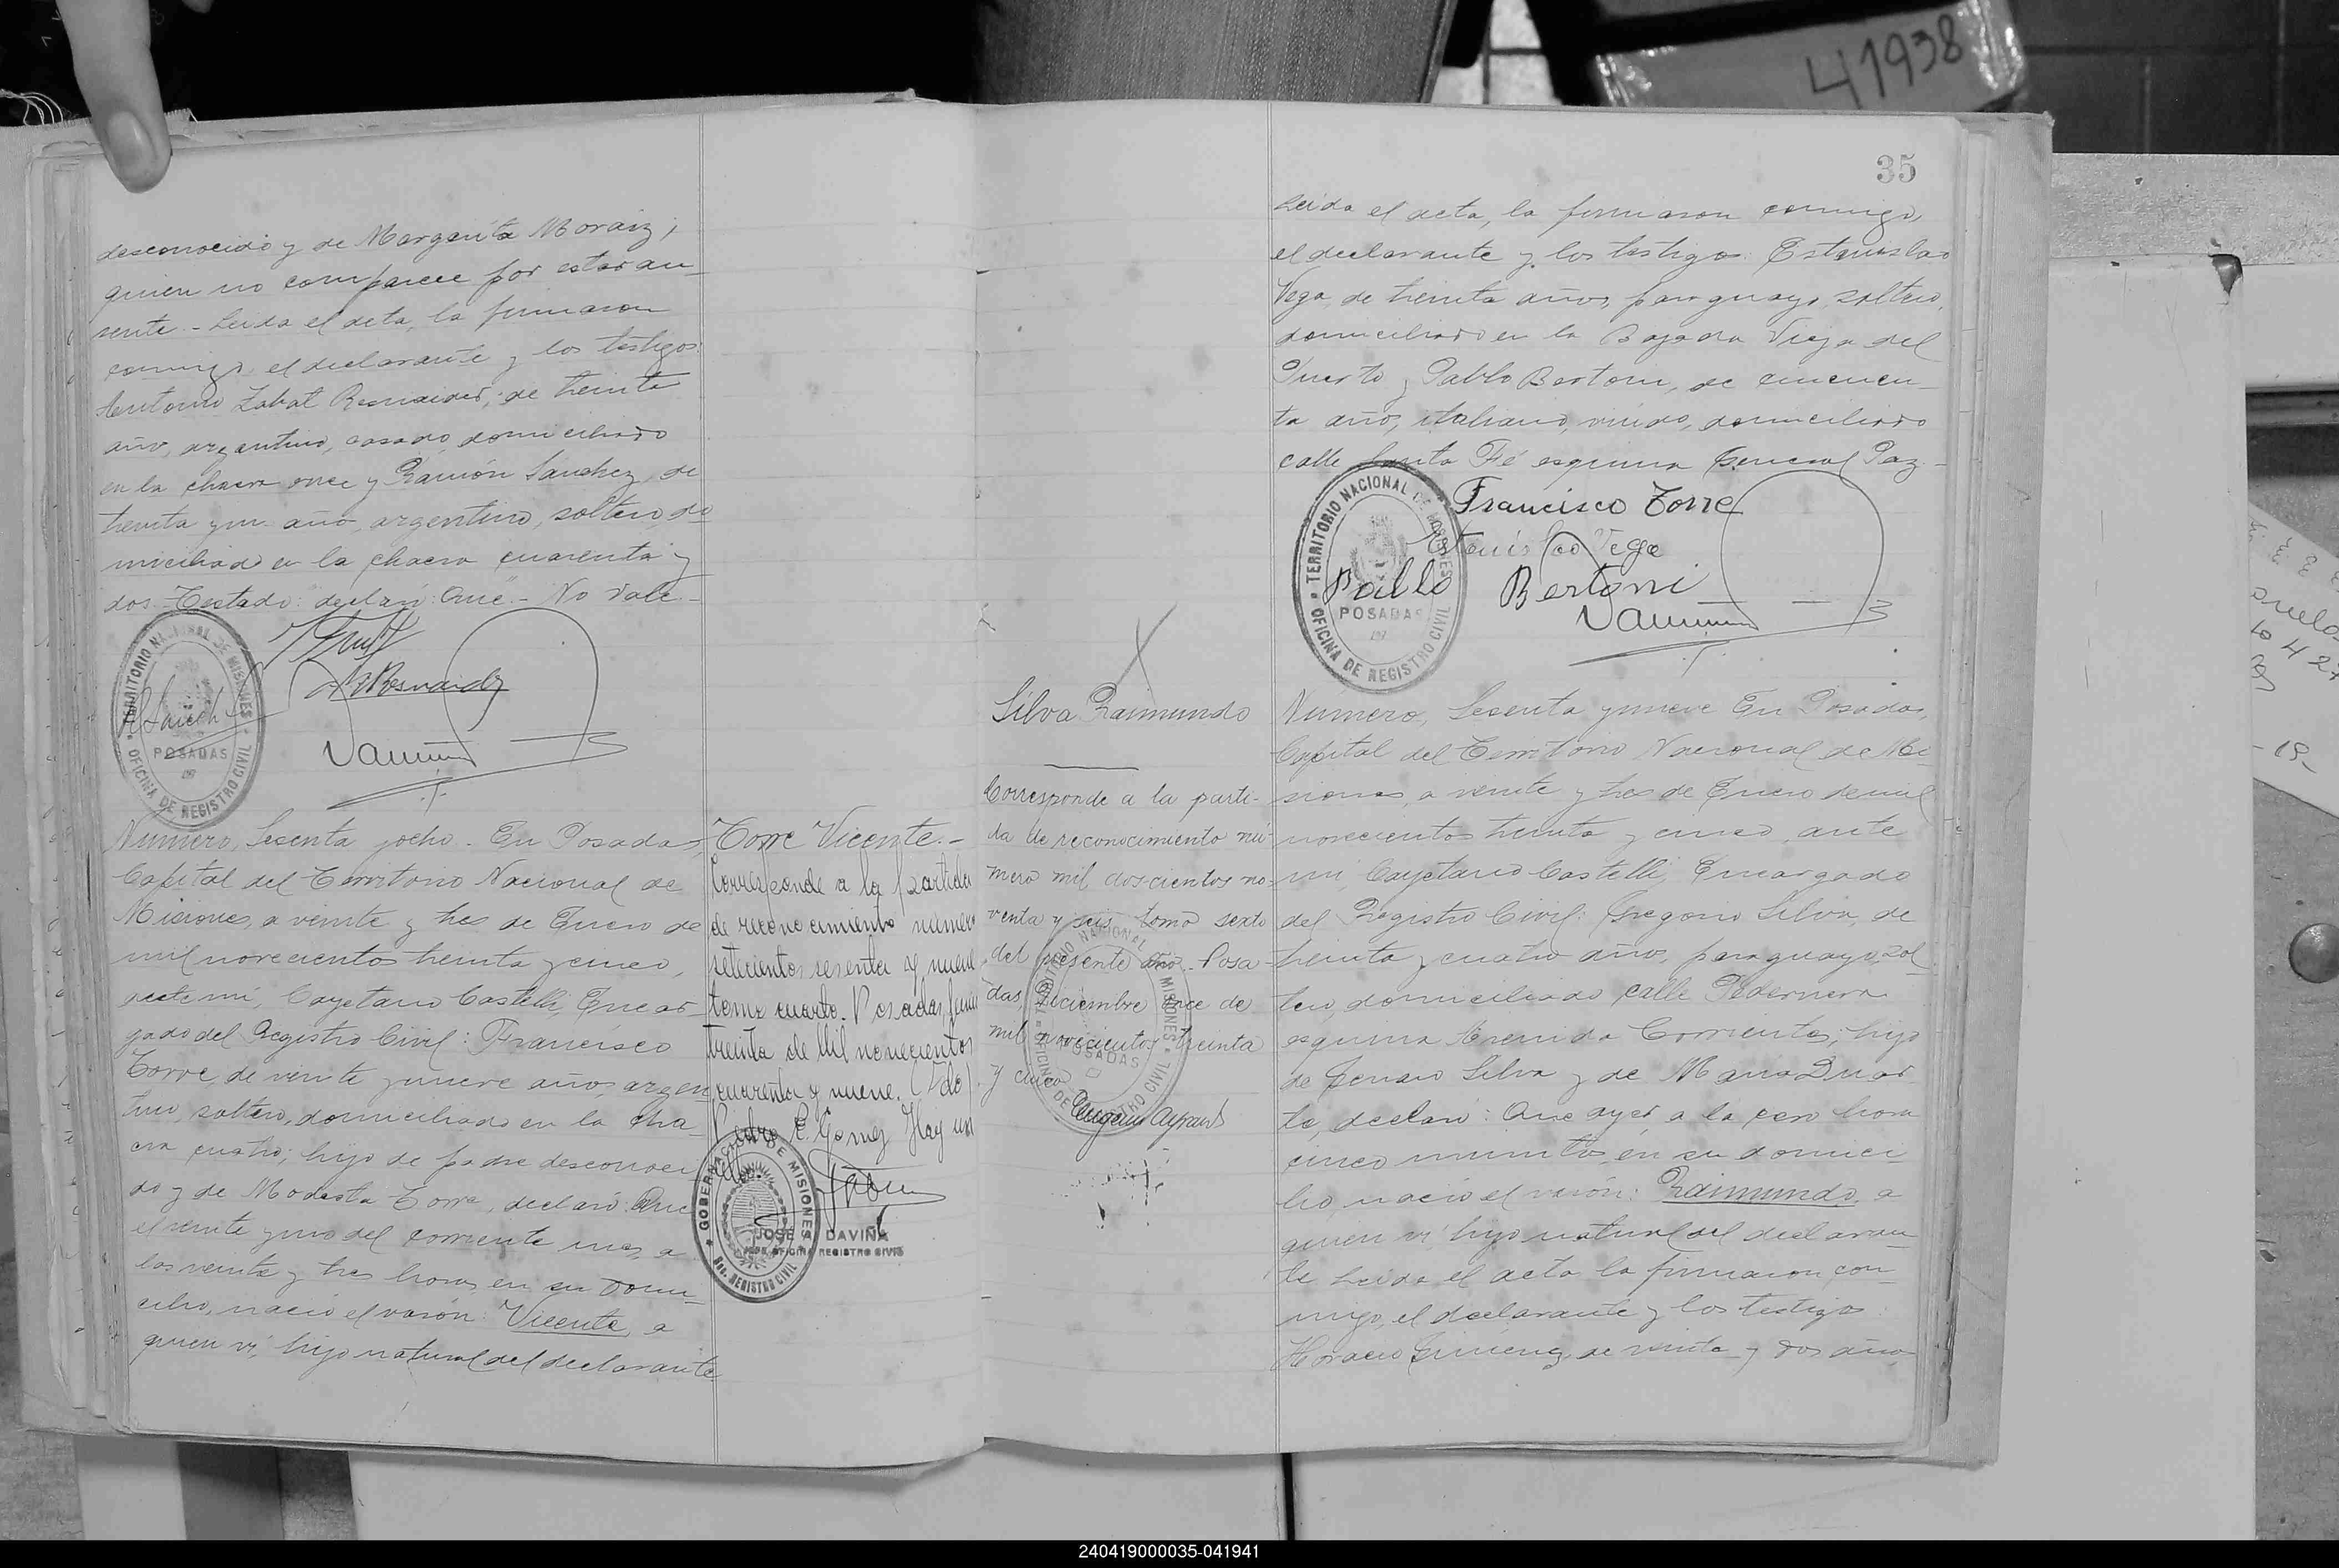 41938
desconocido y de Margarita Moraiz,
quien no comparece por estar au-
sente.- Leida el acta, la firmaron
conmigo, el declarante y los testigos:
Antonio Zabat Resnaider, de treinta
año, argentino, casado, domiciliado
en la chacra once y Ramón Sanchez, de
treinta y un año, argentino, soltero do
miciliado en la chacra cuarenta y
dos. Testado: declaró: Que - No vale.-
TERRITORIO NACIONAL DE MISIONES
POSADAS
OFICINA DE REGISTRO CIVIL
Numero, Sesenta y ocho. En Posadas,
Capital del Territorio Nacional de
Misiones, a veinte y tres de Enero de
mil novecientos treinta y cinco,
ante mi, Cayetano Castelli, Encar-
gado del Registro Civil: Francisco
Torre, de veinte y nueve años, argen
tino, soltero, domiciliado en la cha-
cra cuatro; hijo de padre desconoci
do y de Modesta Torre, declaró: Que
el veinte y uno del corriente mes, a
las veinte y tres horas, en su domi-
cilio, nació el varón: Vicente, a
quien vi, hijo natural del declarante
Torre Vicente.-
Corresponde a la partida
de reconocimiento número
setecientos sesenta y nueve
tomo cuarto. Posadas, Junio
treinta de Mil novecientos
cuarenta y nueve. (Fdo)
Pedro E. Gomez Hay un
sello.
GOBERNACION DE MISIONES
REGISTRO CIVIL
JOSÉ DAVIÑA
JEFE OFICINA REGISTRO CIVIL
Silva Raimundo
Corresponde a la parti-
da de reconocimiento nú-
mero mil doscientos no-
venta y seis, tomo sexto
del presente año. Posa-
das, Diciembre once de
mil novecientos treinta
y cinco
TERRITORIO NACIONAL DE MISIONES
POSADAS
OFICINA DE REGISTRO CIVIL
35
Leida el acta, la firmaron conmigo,
el declarante y los testigos: Estanislao
Vega, de treinta años, paraguayo, soltero,
domiciliado en la Bajada Vieja del
Puerto y Pablo Bertoni, de cincuen-
ta año, italiano, viudo, domiciliado
calle Santa Fé esquina General Paz-
Francisco Torre
Estanislao Vega
Pablo Bertoni
TERRITORIO NACIONAL DE MISIONES
POSADAS
OFICINA DE REGISTRO CIVIL
Numero, Sesenta y nueve En Posadas,
Capital del Territorio Nacional de Mi
siones, a veinte y tres de Enero de mil
novecientos treinta y cinco, ante
mi, Cayetano Castelli, Encargado
del Registro Civil: Gregorio Silva, de
treinta y cuatro años, paraguayo, sol
tero, domiciliado calle Pedernera
esquina Avenida Corrientes; hijo
de Genaro Silva y de Maria Duar
te, declaró: Que ayer, a la cero hora
cinco minutos, en su domici
lio, nació el varón: Raimundo, a
quien vi hijo natural del declaran
te Leida el acta la firmaron con-
migo, el declarante y los testigos:
Horacio Gimenez, de veinte y dos año
240419000035-041941